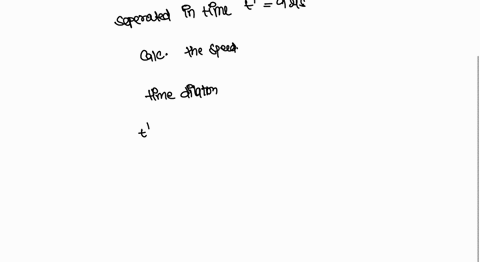 seperated in time t' = 9 μs
Calc. the speed
time dilation
t'